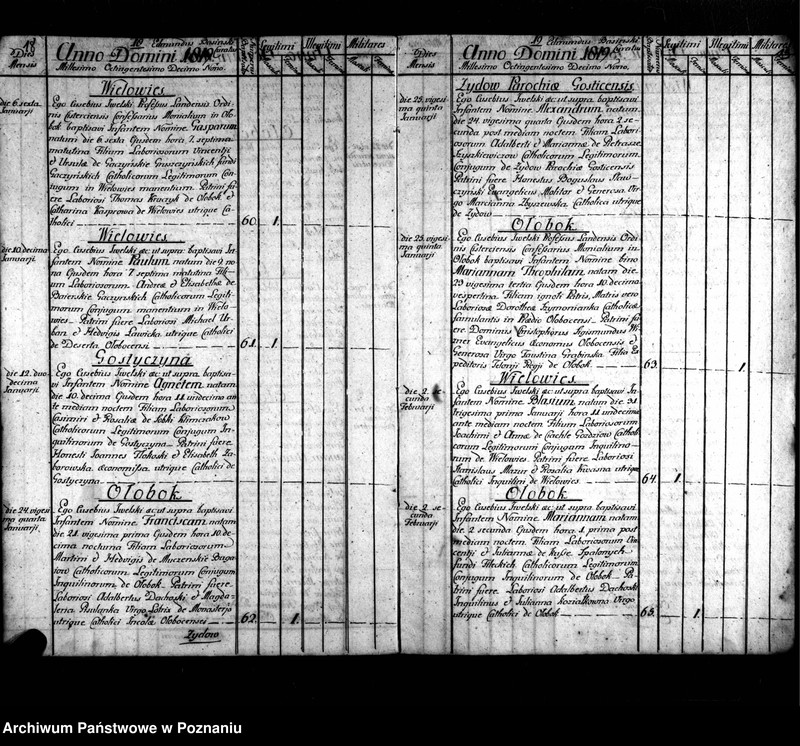 18
19 Edmundus Basinski
Curatus
Dies
Mensis
Anno Domini 1819
Millesimo Octingentesimo Decimo Nono.
Legitimi
Illegitimi
Militares
Wielowies
die 6 sexta
Januarji
Ego Eusebius Jwelski Profesus Landensis Ordi-
nis Cisterciensis Confessarius Monialium in Olo-
bok baptisavi Infantem Nomine Gasparum
natum die 6 sexta Ejusdem hora 7. septima
matutina Filium Laboriosorum Laurentji
et Ursulæ de Gaczyńskie
Gaczyńskich Catholicorum Legitimorum Con-
jugum in Wielowies manentium. Patrini fu-
ere Laboriosi Thomas Kraczyk de Olobok et
Catharina Kasprowa de Wielowies utrique Ca-
tholici 60. 1.
Wielowies
die 10. decima
Januarji.
Ego Eusebius Jwelski ac ut supra baptisavi In-
fantem Nomine Paulum natum die 9. no-
na Ejusdem hora 7 septima matutina Fili-
um Laboriosorum Andreæ et Elisabethæ de
Baierskie Gaczynskich Catholicorum Legiti-
morum Conjugum manentium in Wielo-
wies. Patrini fuere Laboriosi Michael Ur-
ban et Hedvigis Lawicka utrique Catholici
de Deserta Olobocensi 61. 1.
Gostyczyna
die 12. duo-
decima
Januarji
Ego Eusebius Jwelski ac ut supra baptisa-
vi Infantem Nomine Agnetem natam
die 10. decima Ejusdem hora 11 undecima an-
te mediam noctem Filiam Laboriosorum
Casimiri et Rosaliæ de Sobki Klimczakow
Catholicorum Legitimorum Conjugum In-
quilinorum de Gostyczyna. Patrini fuere
Honesti Joannes Tłokoski et Elisabeth Za-
borowska œconomissa utrique Catholici de
Gostyczyna
Olobok
die 24. vigesi-
ma quarta
Januarji.
Ego Eusebius Jwelski ac ut supra baptisavi
Infantem Nomine Franciscam natam
die 21 vigesima prima Ejusdem hora 10. de-
cima nocturna Filiam Laboriosorum
Martini et Hedvigis de Muczenskie Buga-
iow Catholicorum Legitimorum Conjugum
Inquilinorum de Olobok. Patrini fuere
Laboriosi Adalbertus Dachoski et Magda-
lena Pawlanka Virgo de Monasterjo
utrique Catholici Incolæ Olobocensei 62. 1.
Zydow
19 Edmundus Basinski
Curatus
Dies
Mensis
Anno Domini 1819
Millesimo Octingentesimo Decimo Nono.
Legitimi
Illegitimi
Militares
Zydow Parochiæ Gosticensis.
die 25. vigesi-
ma quinta
Januarji
Ego Eusebius Jwelski ac ut supra baptisavi
Infantem Nomine Alexandrum natum
die 24. vigesima quarta Ejusdem hora 2 se-
cunda post mediam noctem Filium Labori-
osorum Adalberti et Mariannæ de Pietrasze
Juszkiewiczow Catholicorum Legitimorum
Conjugum de Zydow Parochiæ Gosticensis
Patrini fuere Honestus Boguslaus
Evangelicus Molitor et Generosa Vir-
go Marcianna Zbyszewska Catholica utrique
de Zydow
Olobok
die 25. vigesi-
ma quinta
Januarji
Ego Eusebius Jwelski Profesus Landensis Ordi-
nis Cisterciensis Confessarius Monialium in
Olobok baptisavi Infantem Nomine bino
Mariannam Theophilam natam die
23 vigesima tertia Ejusdem hora 10. decima
vespertina Filiam ignoti Patris, Matris vero
Laboriosæ Dorotheæ Szymonianka Catholicæ
famulantis in Prædio Olobocensi. Patrini fu-
ere Dominus Christophorus Sigismundus Wi-
zner Evangelicus Œconomus Olobocensis et
Generosa Virgo Faustina Grabinska Filia Ex-
peditoris Telonji Regji de Olobok 63. 1.
Wielowies
die 2. se-
cunda
Februarji
Ego Eusebius Jwelski ac ut supra baptisavi In-
fantem Nomine Blasium natum die 31
trigesima prima Januarji hora 11 undecima
ante mediam noctem Filium Laboriosorum
Joachimi et Annæ de Ciachle Gozdziow Catholi-
corum Legitimorum Conjugum Inquilino-
rum de Wielowies. Patrini fuere Laboriosi
Stanislaus Mazur et Rosalia Kwasna utrique
Catholici Inquilini de Wielowies. 64. 1.
Olobok
die 2 se-
cunda
Februarji
Ego Eusebius Jwelski ac ut supra baptisavi
Infantem Nomine Mariannam natam
die 2 secunda Ejusdem hora 1 prima post
mediam noctem Filiam Laboriosorum Vin-
centji et Juliannæ de Kupe
Catholicorum Legitimorum
Conjugum Inquilinorum de Olobok. Pa-
trini fuere Laboriosi Adalbertus Dachoski
Inquilinus et Julianna Kozialkowna Virgo
utrique Catholici de Olobok 65. 1.
Archiwum Państwowe w Poznaniu